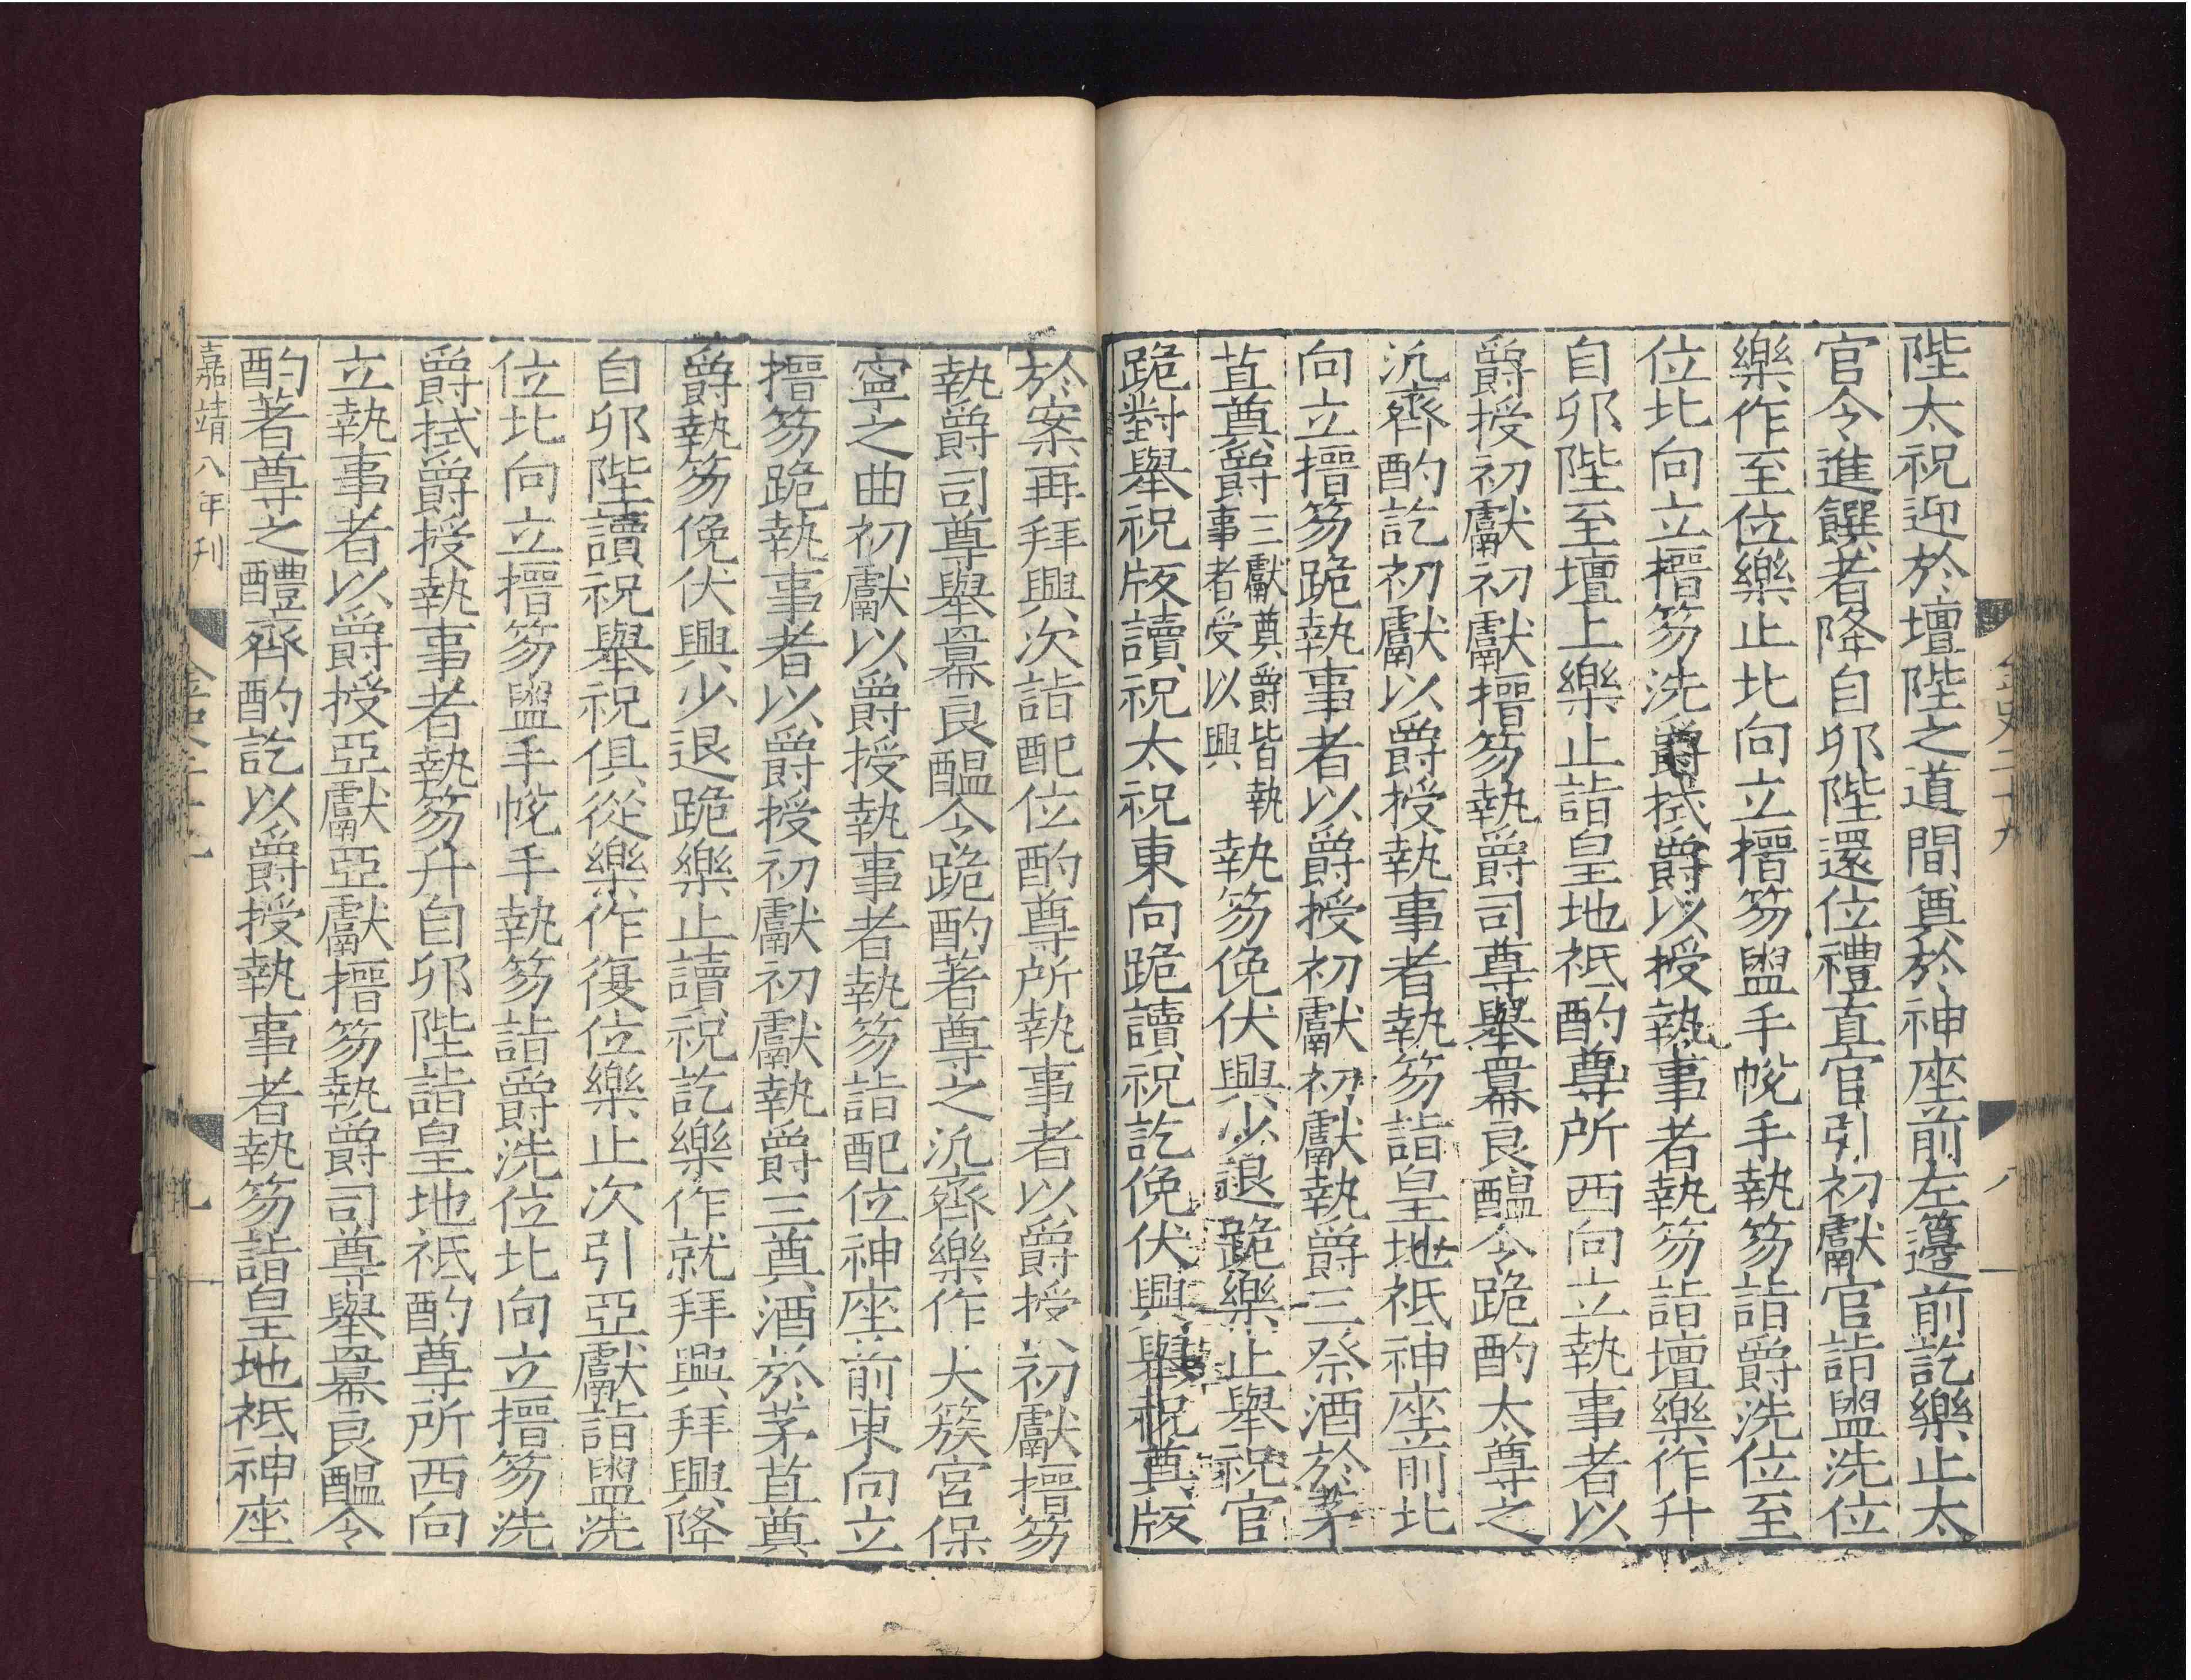 陛太祝迎於壇陛之道間奠於神座前左籩前訖樂止太
官令進饌者降自卯陛還位禮直官引初獻官詣盥洗位
樂作至位樂止北向立搢笏盥手帨手執笏詣爵洗位至
位北向立搢笏洗爵拭爵以授執事者執笏詣壇樂作升
自卯陛至壇上樂止詣皇地祇酌尊所西向立執事者以
爵授初獻初獻搢笏執爵司尊舉冪良醞令跪酌太尊之
汎齊酌訖初獻以爵授執事者執笏詣皇地祇神座前北
向立搢笏跪執事者以爵授初獻初獻執爵三祭酒於茅
苴奠爵三獻奠爵皆執事者受以興執笏俛伏興少退跪樂止舉祝官
跪對舉祝版讀祝太祝東向跪讀祝訖俛伏興舉祝奠版
於案再拜興次詣配位酌尊所執事者以爵授初獻搢笏
執爵司尊舉冪良醞令跪酌著尊之汎齊樂作太簇宮保
寧之曲初獻以爵授執事者執笏詣配位神座前東向立
搢笏跪執事者以爵授初獻初獻執爵三奠酒於茅苴奠
爵執笏俛伏興少退跪樂止讀祝訖樂作就拜興拜興降
自卯陛讀祝舉祝俱從樂作復位樂止次引亞獻詣盥洗
位北向立搢笏盥手帨手執笏詣爵洗位北向立搢笏洗
爵拭爵授執事者執笏升自卯陛詣皇地祇酌尊所西向
立執事者以爵授亞獻亞獻搢笏執爵司尊舉冪良醞令
酌著尊之醴齊酌訖以爵授執事者執笏詣皇地祇神座
嘉靖八年刊
金史二十九
八